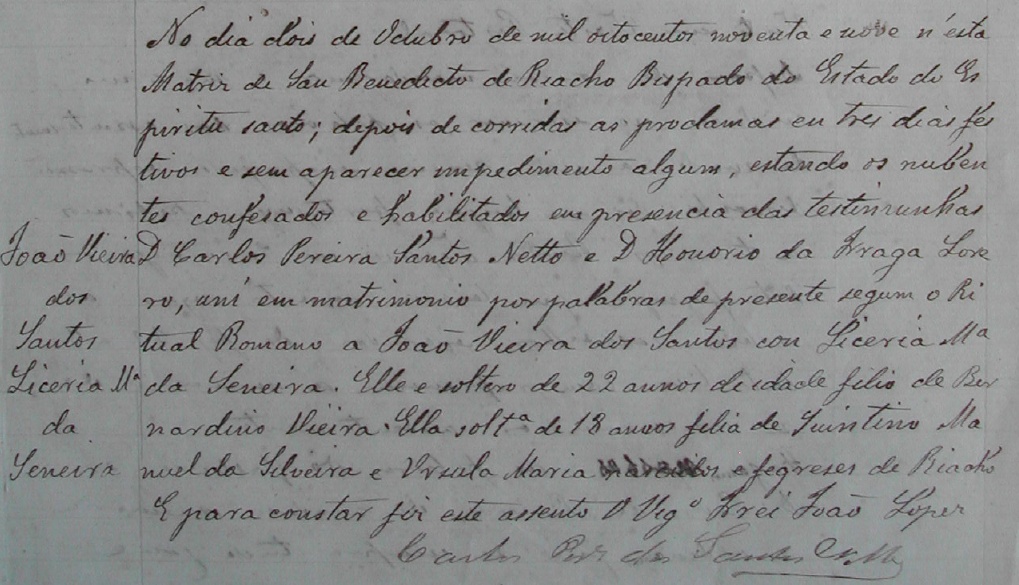 No dia dois de Octubro de mil oitocentos noventa e nove n'esta
Matriz de San Benedicto de Riacho Bispado do Estado do Es
piritu santo; depois de corridas as proclamas en tres dias fes
tivos e sem aparecer impedimento algum, estando os nuben
tes confesados e habilitados em presencia das testimunhas
D Carlos Pereira Santos Netto e D Honorio da Fraga Lore
ro, uni em matrimonio por palabras de presente segum o Ri
tual Romano a João Vieira dos Santos con Liceria Mª
da Seneira. Elle e soltero de 22 annos de idade filio de Ber
nardino Vieira. Ella soltª de 18 annos filia de Quintino Ma
nuel da Silveira e Ursula Maria e fegreses de Riacho
E para constar fiz este assento O Vigº Frei João Lopez
Carlos Per dos Santos Netto
João Vieira
dos
Santos
Liceria Mª
da
Seneira